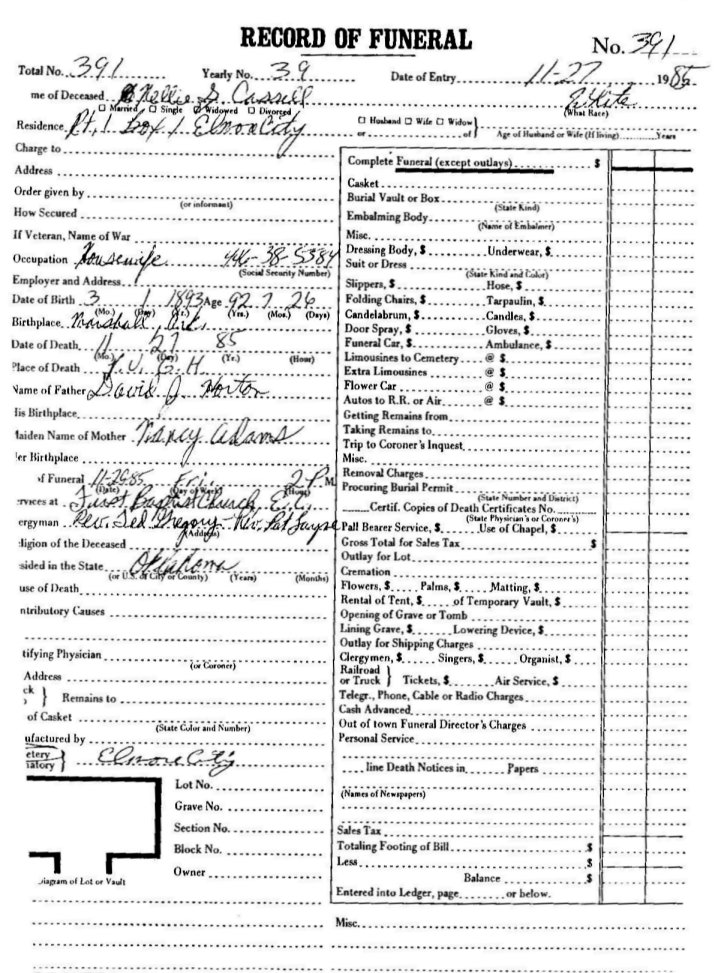 RECORD OF FUNERAL
No. 391
Total No. 391 Yearly No. 39 Date of Entry 11-27 1985
me of Deceased Nellie G. Cassell White
☐ Married ☐ Single ☐ Widowed ☐ Divorced (What Race)
Residence Rt, 1 Box 1 Elmore City
☐ Husband ☐ Wife ☐ Widow}
or of Age of Husband or Wife (If living) Years
Charge to
Address
Order given by
(or informant)
How Secured
If Veteran, Name of War
Occupation Housewife 446-38-5384
(Social Security Number)
Employer and Address
Date of Birth 3 1 1893 Age 92 7 26
(Mo.) (Day) (Yr.) (Yrs.) (Mos.) (Days)
Birthplace Marshall, Ark.
Date of Death 11 27 85
(Mo.) (Day) (Yr.) (Hour)
Place of Death G. H
Name of Father David J. Horton
His Birthplace
Maiden Name of Mother Nancy Adams
er Birthplace
of Funeral 11-29-85 Fri. 2 P. M
(Date) (Day of Week) (Hour)
rvices at First Baptist Church, E.C.
ergyman Rev. Ted Gregory - Rev. Pat
(Address)
ligion of the Deceased
sided in the State Oklahoma
(or U.S. of City or County) (Years) (Months)
use of Death
ntributory Causes
tifying Physician
(or Coroner)
Address
ck } Remains to
of Casket
(State Color and Number)
ufactured by
etery
atory } Elmore City
Lot No.
Grave No.
Section No.
Block No.
Owner
Diagram of Lot or Vault
Complete Funeral (except outlays) $
Casket
Burial Vault or Box
(State Kind)
Embalming Body
(Name of Embalmer)
Misc.
Dressing Body, $ Underwear, $
Suit or Dress
(State Kind and Color)
Slippers, $ Hose, $
Folding Chairs, $ Tarpaulin, $
Candelabrum, $ Candles, $
Door Spray, $ Gloves, $
Funeral Car, $ Ambulance, $
Limousines to Cemetery @ $
Extra Limousines @ $
Flower Car @ $
Autos to R.R. or Air @ $
Getting Remains from
Taking Remains to
Trip to Coroner's Inquest
Misc.
Removal Charges
Procuring Burial Permit
(State Number and District)
Certif. Copies of Death Certificates No.
(State Physician's or Coroner's)
Pall Bearer Service, $ Use of Chapel, $
Gross Total for Sales Tax $
Outlay for Lot
Cremation
Flowers, $ Palms, $ Matting, $
Rental of Tent, $ of Temporary Vault, $
Opening of Grave or Tomb
Lining Grave, $ Lowering Device, $
Outlay for Shipping Charges
Clergymen, $ Singers, $ Organist, $
Railroad
or Truck } Tickets, $ Air Service, $
Telegr., Phone, Cable or Radio Charges
Cash Advanced
Out of town Funeral Director's Charges
Personal Service
line Death Notices in Papers
(Names of Newspapers)
Sales Tax
Totaling Footing of Bill $
Less $
Balance $
Entered into Ledger, page or below.
Misc.